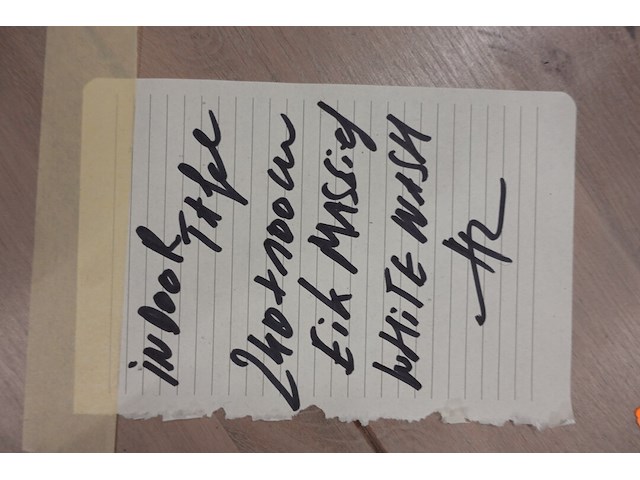 iNDOOR
TAfel
240x100cm
Eik MASSief
WHiTE WASH